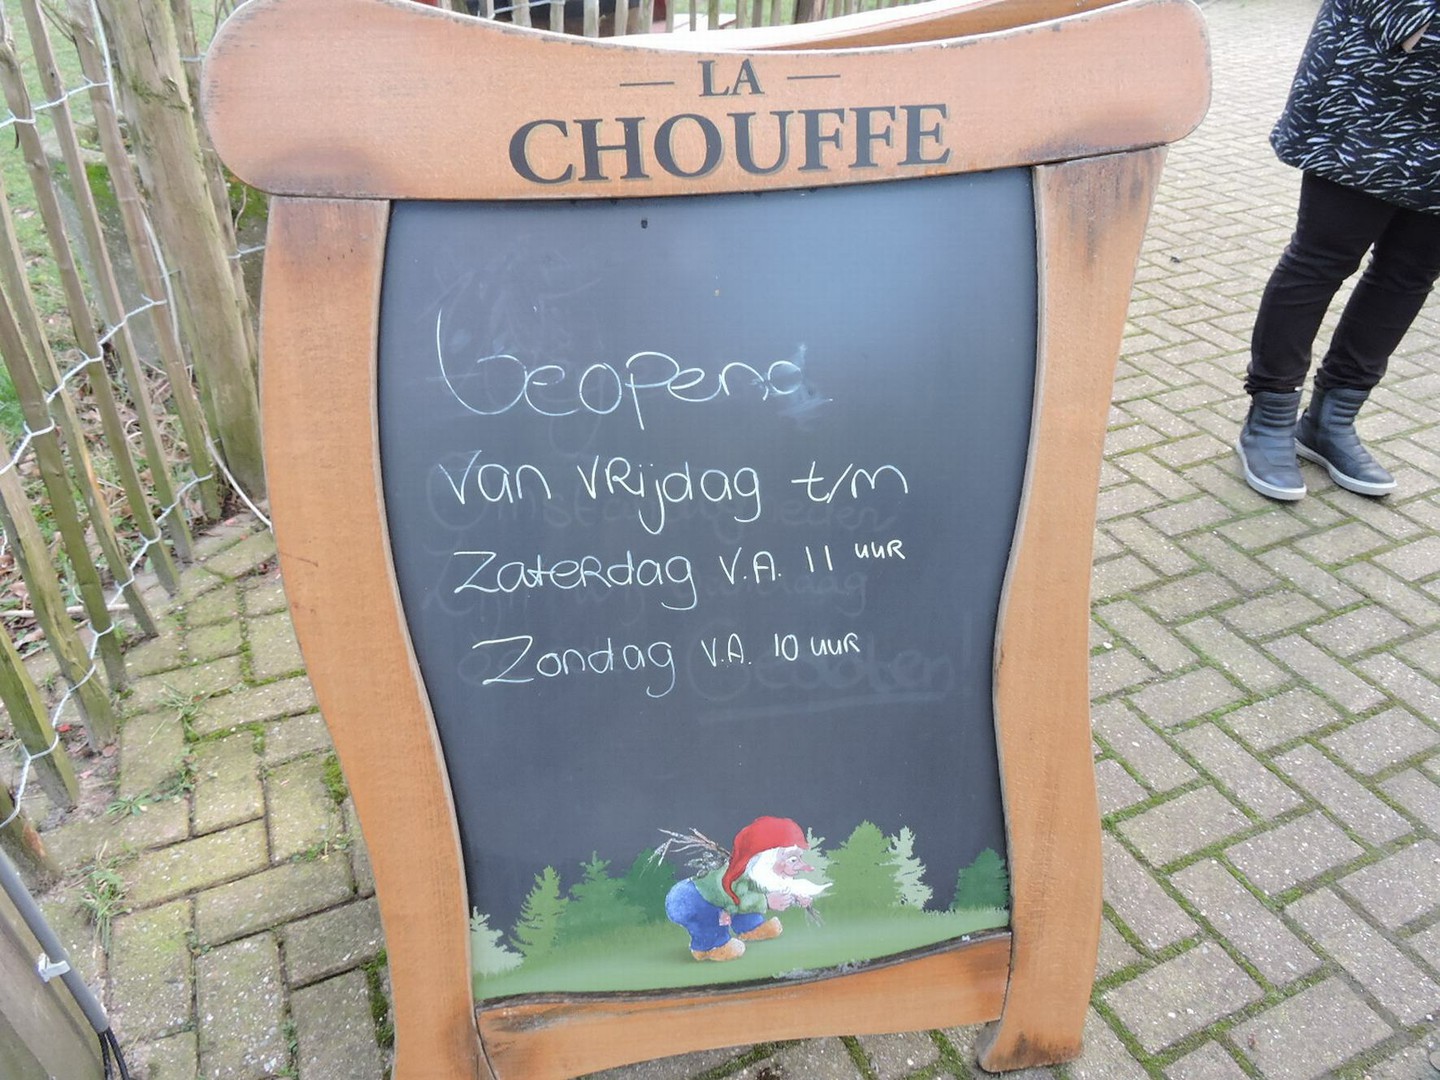 LA
CHOUFFE
Geopend
van vrijdag t/m
Zaterdag V.A. 11 uur
Zondag V.A. 10 uur